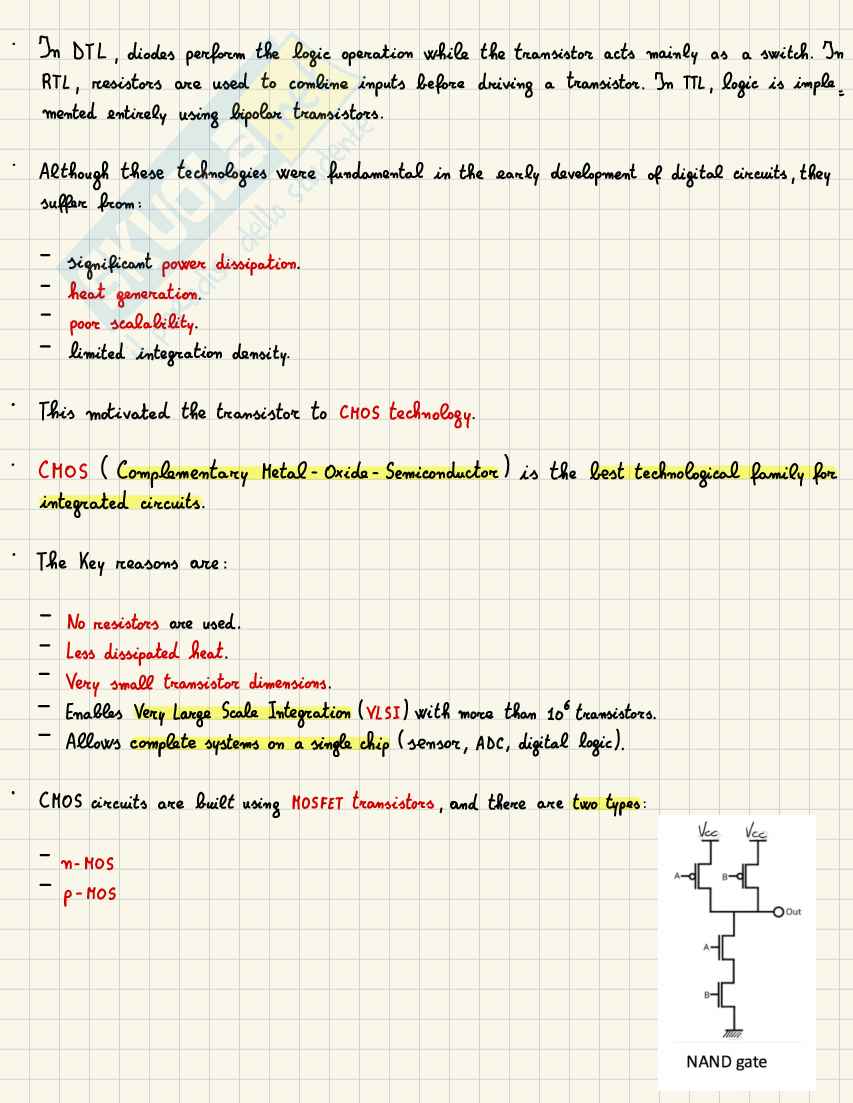 · In DTL, diodes perform the logic operation while the transistor acts mainly as a switch. In
RTL, resistors are used to combine inputs before driving a transistor. In TTL, logic is imple=
mented entirely using bipolar transistors.
· Although these technologies were fundamental in the early development of digital circuits, they
suffer from:
- significant power dissipation.
- heat generation.
- poor scalability.
- limited integration density.
· This motivated the transistor to CMOS technology.
· CMOS (Complementary Metal-Oxide-Semiconductor) is the best technological family for
integrated circuits.
· The Key reasons are:
- No resistors are used.
- Less dissipated heat.
- Very small transistor dimensions.
- Enables Very Large Scale Integration (VLSI) with more than 10⁶ transistors.
- Allows complete systems on a single chip (sensor, ADC, digital logic).
· CMOS circuits are built using MOSFET transistors, and there are two types:
- n-MOS
- p-MOS
Vcc Vcc
A B
Out
A
B
NAND gate